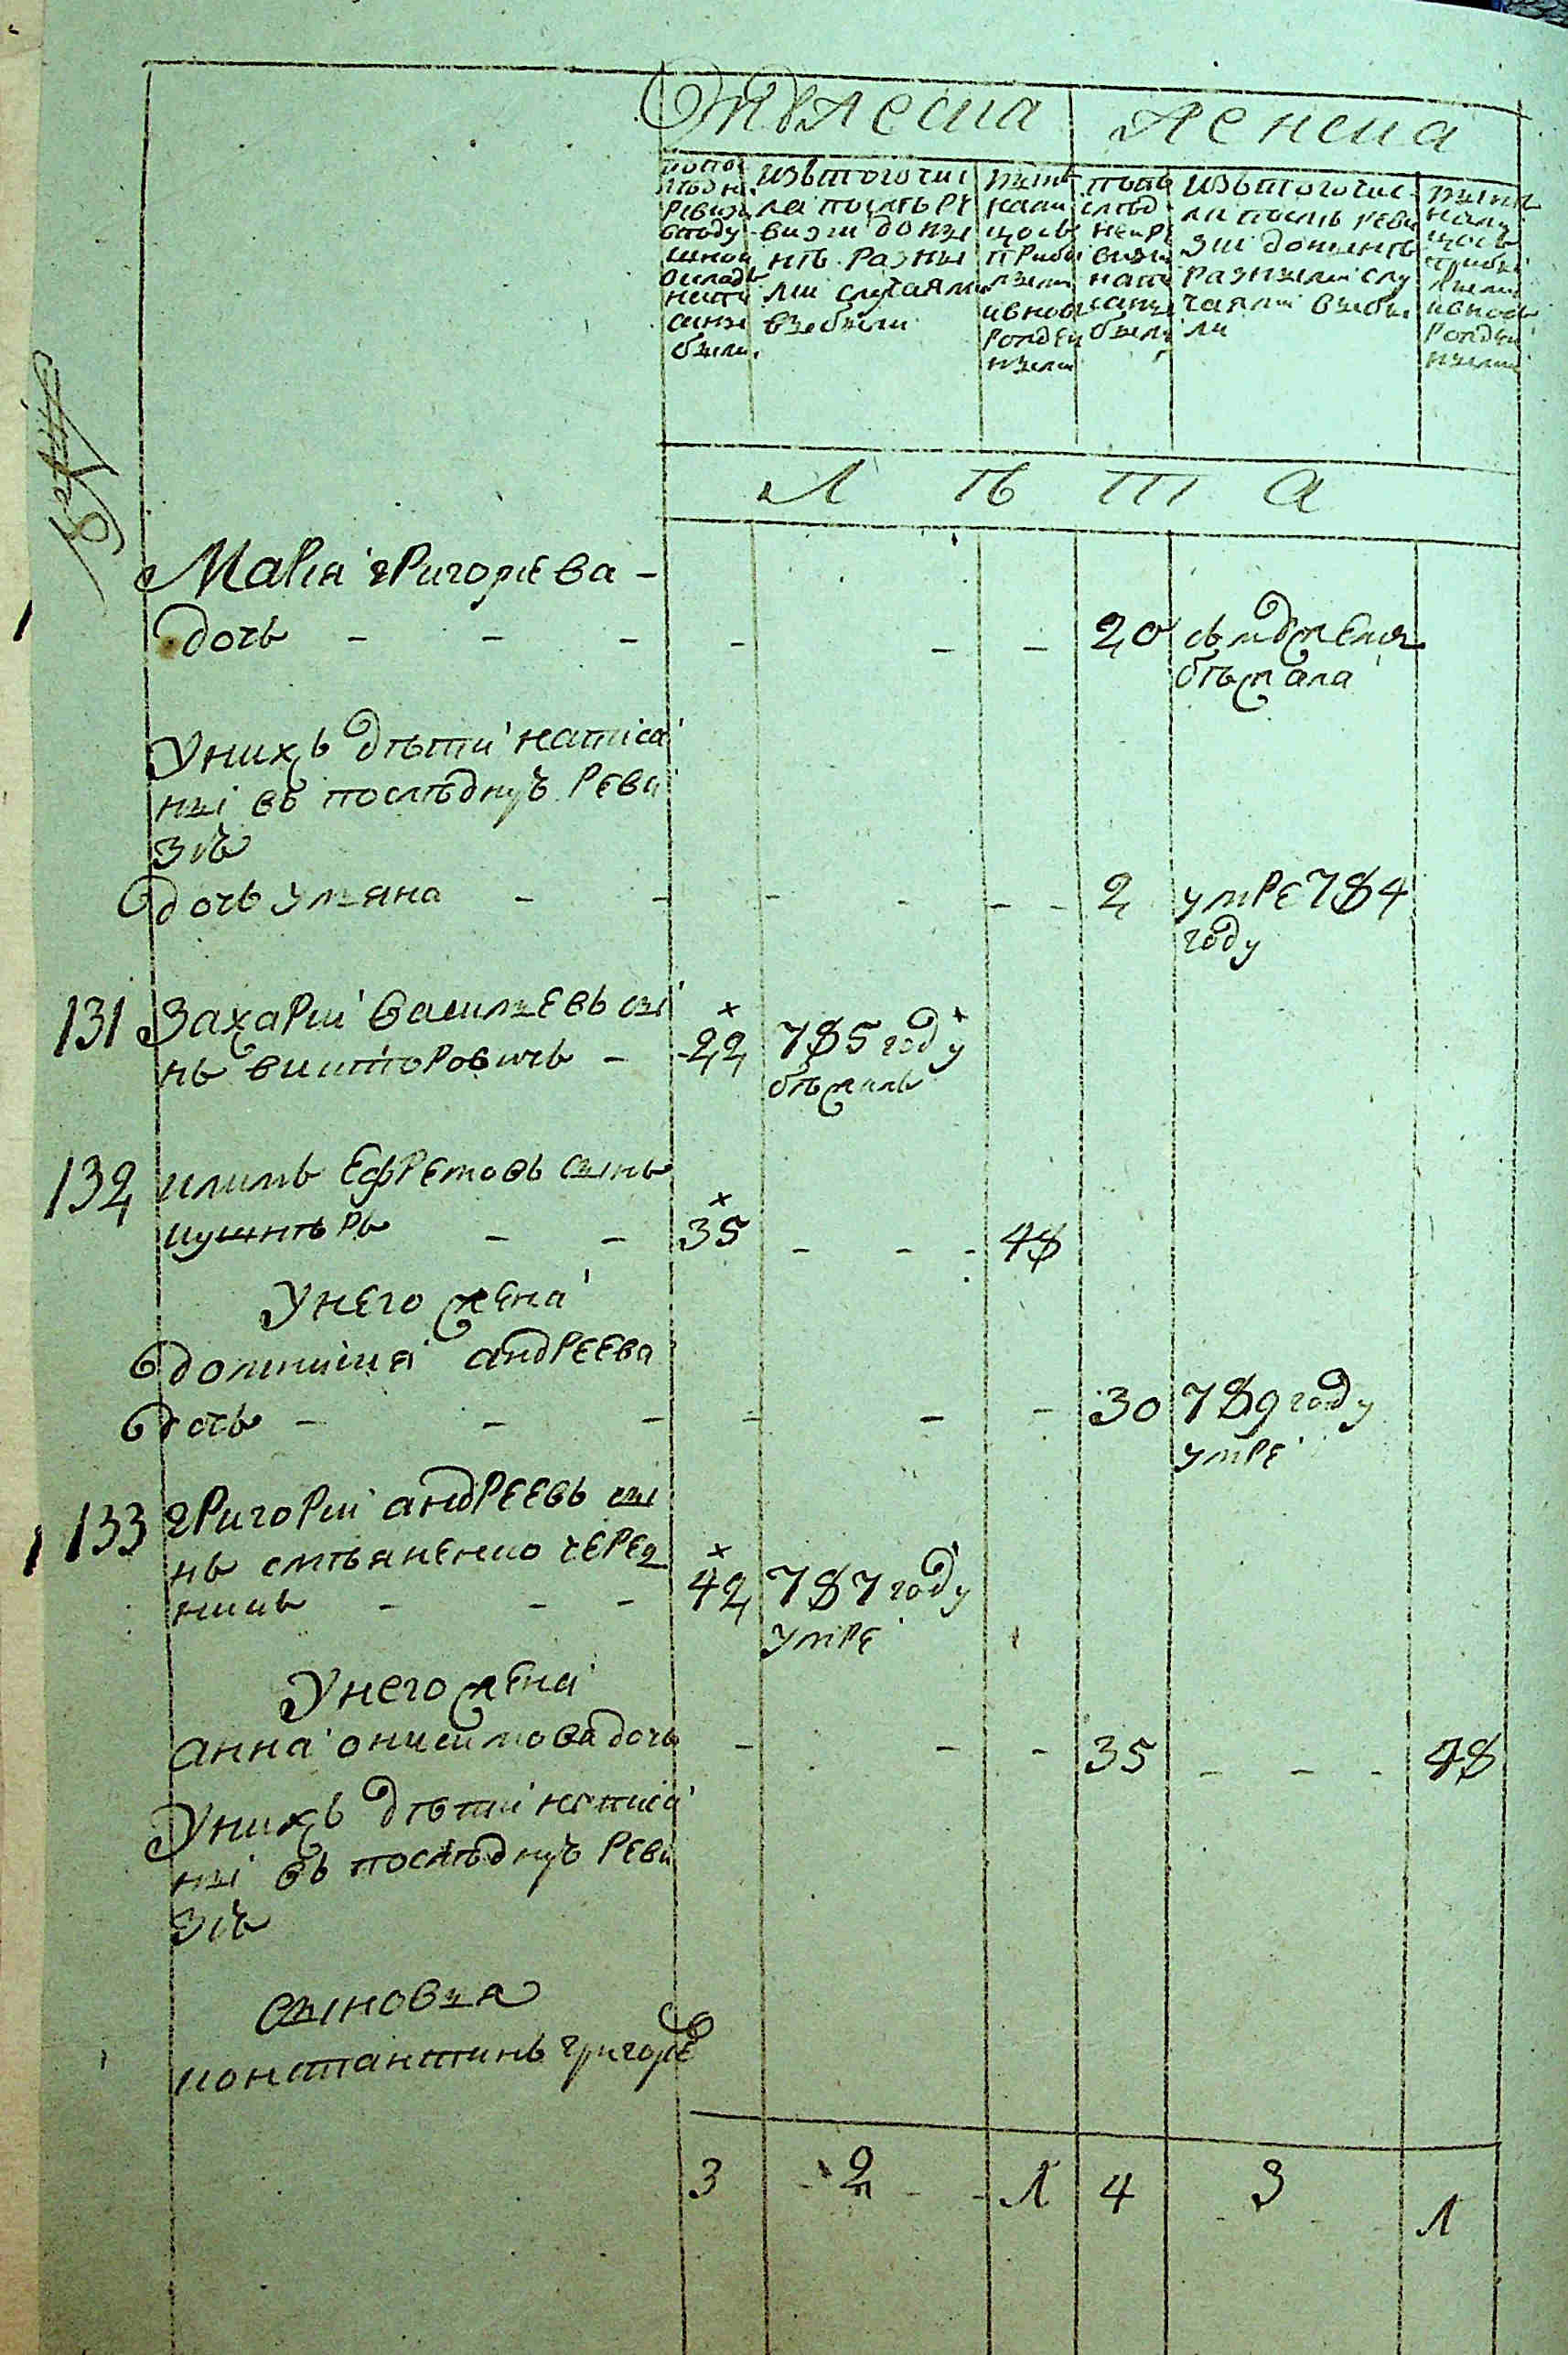 Мужеска Женска
попо
следне
ревизи
вподу
шной
окладъ
напи
саные
были
изътогочис
ла послѣ ре
визіи доны
нѣ разны
ми случаями
выбыли
ныне
нали
цось
прибы
лыми
ивновь
рожден
ными
попо
слѣд
неире
визи
напи
саны
были
изътогочис
ла послѣ реви
зіи донынѣ
разными слу
чаями выбы
ли
ныне
нали
цось
прибы
лыми
ивновь
рожден
ными
Л ѣ т а
Марія григорьева -
дочь - - - - - - 20 съмужемъ
бѣжала
Унихъ дѣти написа
ны въ послѣднюю реви
зію
дочь ульяна - - - - - - 2 умре 784
году
131 Захарій васильевъ сы
нъ викторовичь - 22 785 году
бѣжалъ
132 климъ Ефремовъ сынъ
кушнѣръ - - 35 - - - 48
Унего жена
домникія андреева
дочь - - - - - - 30 789 году
умре
133 григорій андреевъ сы
нъ омѣяненко черед
никъ - - - 42 787 году
умре
Унего жена
анна онисимова дочь - - - 35 - - - 48
Унихъ дѣти написа
ны въ послѣднюю реви
зію
сыновья
константинъ григорьев
3 2 1 4 3 1